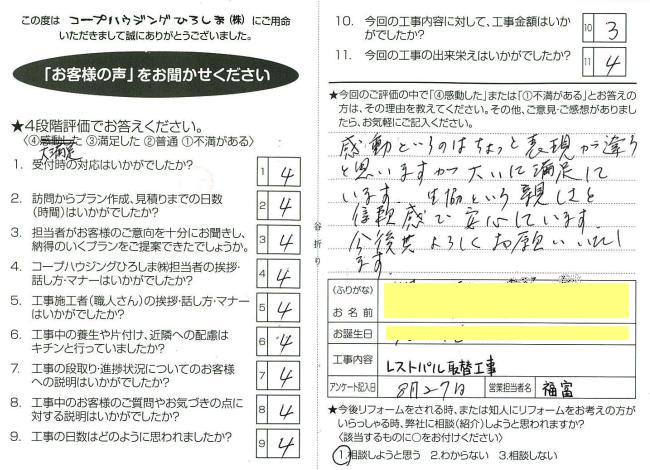 この度は コープハウジングひろしま(株) にご用命
いただきまして誠にありがとうございました。
「お客様の声」をお聞かせください
★4段階評価でお答えください。
〈④感動した ③満足した ②普通 ①不満がある〉
大満足
1. 受付時の対応はいかがでしたか?
1 4
2. 訪問からプラン作成、見積りまでの日数
(時間)はいかがでしたか?
2 4
3. 担当者がお客様のご意向を十分にお聞きし、
納得のいくプランをご提案できたでしょうか。
3 4
4. コープハウジングひろしま㈱担当者の挨拶・
話し方・マナーはいかがでしたか?
4 4
5. 工事施工者(職人さん)の挨拶・話し方・マナー
はいかがでしたか?
5 4
6. 工事中の養生や片付け、近隣への配慮は
キチンと行っていましたか?
6 4
7. 工事の段取り・進捗状況についてのお客様
への説明はいかがでしたか?
7 4
8. 工事中のお客様のご質問やお気づきの点に
対する説明はいかがでしたか?
8 4
9. 工事の日数はどのように思われましたか?
9 4
谷折り
10. 今回の工事内容に対して、工事金額はいか
がでしたか?
10 3
11. 今回の工事の出来栄えはいかがでしたか?
11 4
★今回のご評価の中で「④感動した」または「①不満がある」とお答え
の方は、その理由を教えてください。その他、ご意見・ご感想がありまし
たら、お気軽にご記入ください。
感動というのはちょっと表現が違う
と思いますが大いに満足して
います。生協という親しさと
信頼感で安心しています。
今後共よろしくお願いいたし
ます。
(ふりがな)
お名前
お誕生日
工事内容 レストパル取替工事
アンケート記入日 8月27日 営業担当者名 福富
★今後リフォームをされる時、または知人にリフォームをお考えの方が
いらっしゃる時、弊社に相談(紹介)しようと思いますか?
〈該当するものに○をお付けください〉
1.相談しようと思う 2.わからない 3.相談しない